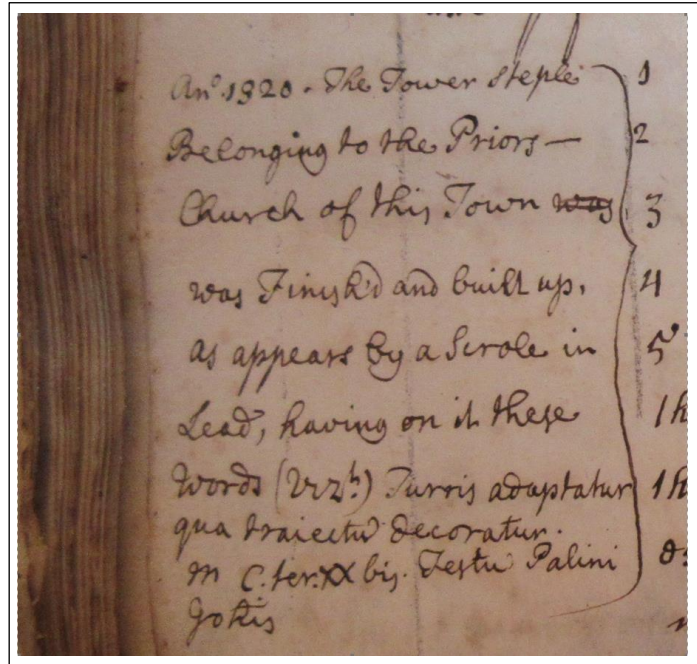 Anº 1320. The Tower steple 1
Belonging to the Priors — 2
Church of this Town was 3
was Finish'd and built up, 4
as appears by a Scrole in 5
Lead, having on it these 1h
Words (Vizt.) Turris adaptatur 1h
qua traiectũ decoratur.
M C. ter. XX bis. Testũ Palini
Jotis